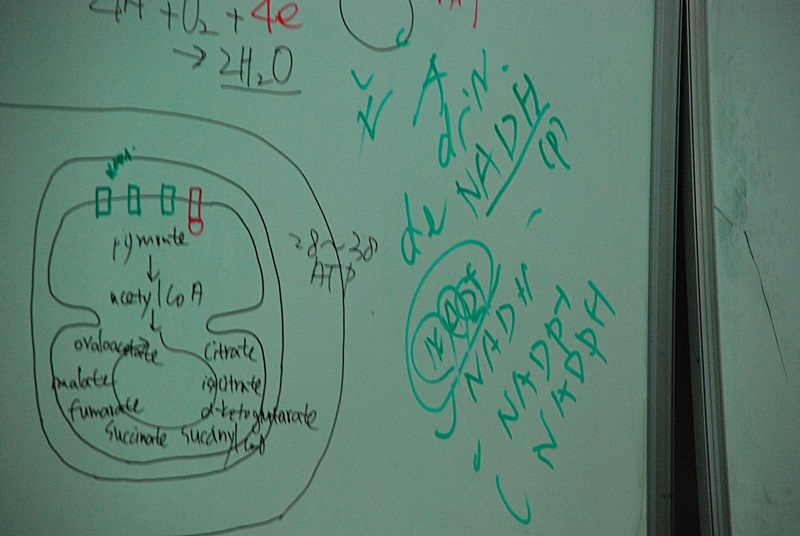 4H + O2 + 4e
→ 2H2O
N A
di N.
NADH
(P)
de
pyruvate
↓
acetyl CoA
↓
oxaloacetate
citrate
malate
isocitrate
fumarate
α-ketoglutarate
succinate succinyl CoA
28~38
ATP
N A D+
NADH
NADP+
NADPH